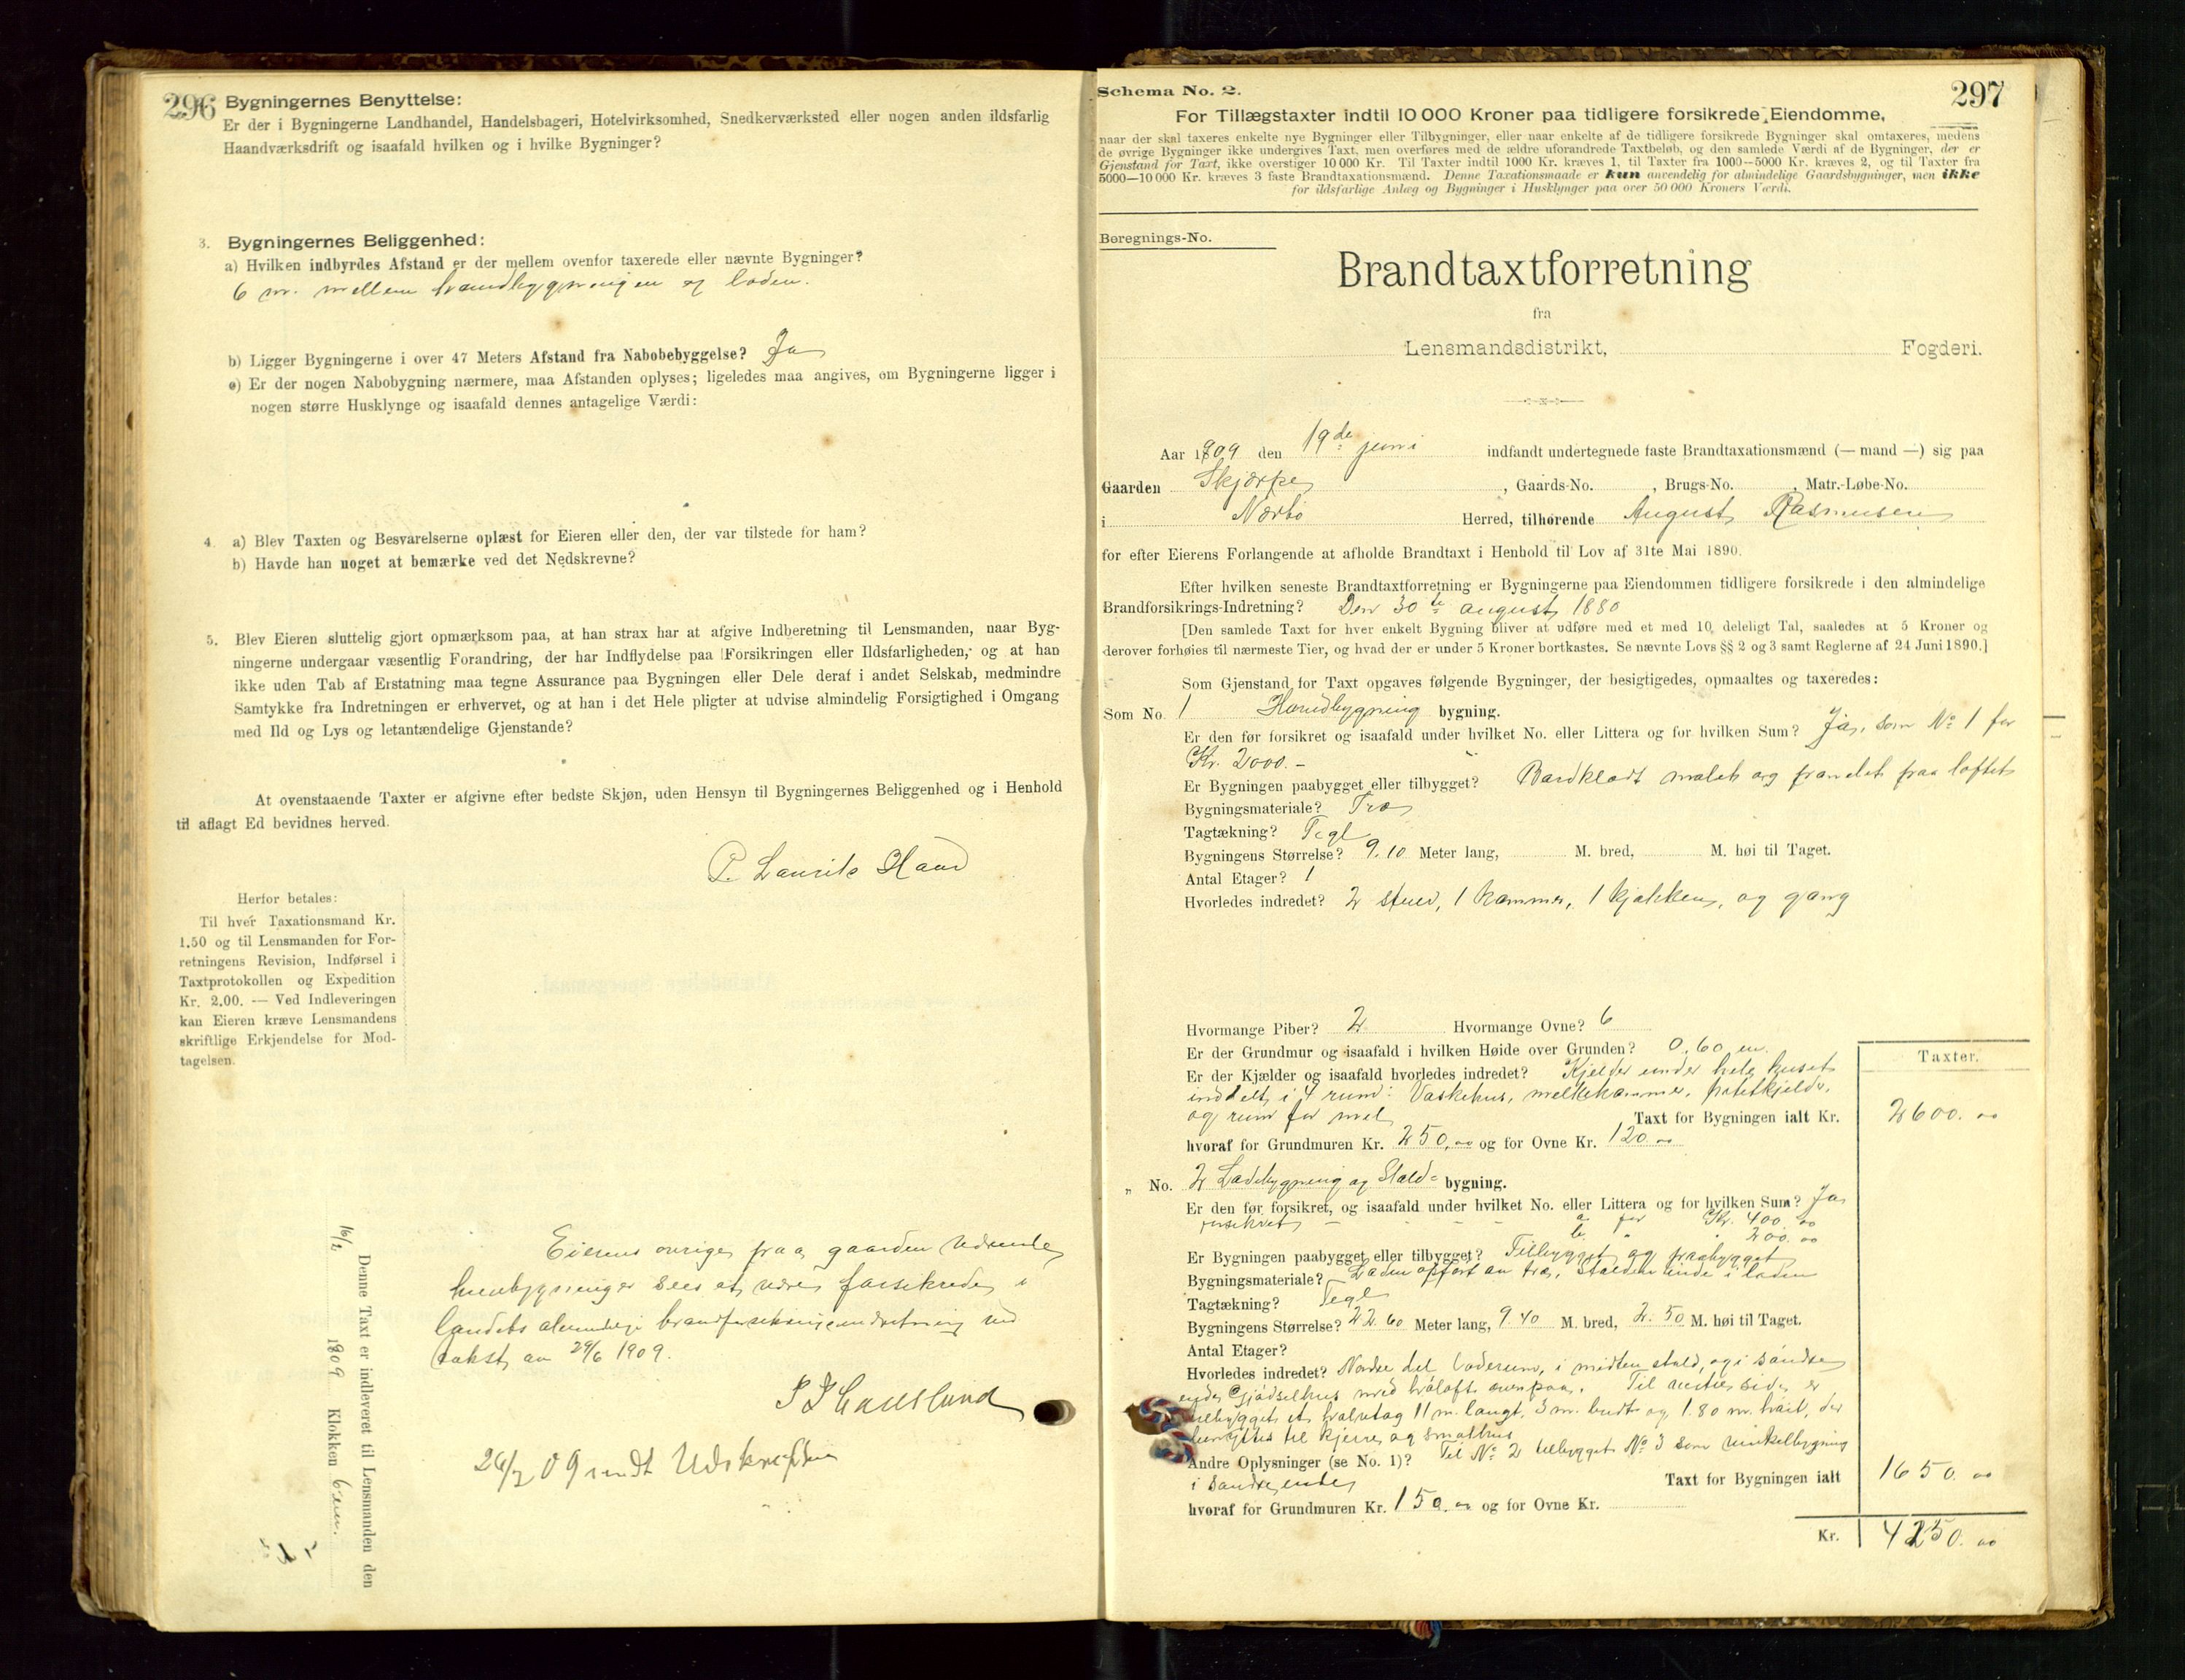 296
Bygningernes Benyttelse:
Er der i Bygningerne Landhandel, Handelsbageri, Hotelvirksomhed, Snedkerværksted eller nogen anden ildsfarlig
Haandværksdrift og isaafald hvilken og i hvilke Bygninger?
3. Bygningernes Beliggenhed:
a) Hvilken indbyrdes Afstand er der mellem ovenfor taxerede eller nævnte Bygninger?
6 m. mellem haandbygningen og loden.
b) Ligger Bygningerne i over 47 Meters Afstand fra Nabobebyggelse? Ja
c) Er der nogen Nabobygning nærmere, maa Afstanden oplyses; ligeledes maa angives, om Bygningerne ligger i
nogen større Husklynge og isaafald dennes antagelige Værdi:
4. a) Blev Taxten og Besvarelserne oplæst for Eieren eller den, der var tilstede for ham?
b) Havde han noget at bemærke ved det Nedskrevne?
5. Blev Eieren sluttelig gjort opmærksom paa, at han strax har at afgive Indberetning til Lensmanden, naar Byg-
ningerne undergaar væsentlig Forandring, der har Indflydelse paa Forsikringen eller Ildsfarligheden, og at han
ikke uden Tab af Erstatning maa tegne Assurance paa Bygningen eller Dele deraf i andet Selskab, medmindre
Samtykke fra Indretningen er erhvervet, og at han i det Hele pligter at udvise almindelig Forsigtighed i Omgang
med Ild og Lys og letantændelige Gjenstande?
At ovenstaaende Taxter er afgivne efter bedste Skjøn, uden Hensyn til Bygningernes Beliggenhed og i Henhold
til aflagt Ed bevidnes herved.
P. Laurits Haar
Herfor betales:
Til hver Taxationsmand Kr.
1.50 og til Lensmanden for For-
retningens Revision, Indførsel i
Taxtprotokollen og Expedition
Kr. 2.00. — Ved Indleveringen
kan Eieren kræve Lensmandens
skriftlige Erkjendelse for Mod-
tagelsen.
Denne Taxt er indleveret til Lensmanden den
16/2 1909 Klokken 6 em.
Eierens øvrige paa gaarden værende
huse bygninger sees at være forsikrede i
landets almindelige brandforsikringsindretning ved
takst av 29/6 1909.
26/7 09 sendt Udskriften
Schema No. 2.
297
For Tillægstaxter indtil 10 000 Kroner paa tidligere forsikrede Eiendomme,
naar der skal taxeres enkelte nye Bygninger eller Tilbygninger, eller naar enkelte af de tidligere forsikrede Bygninger skal omtaxeres, medens
de øvrige Bygninger ikke undergives Taxt, men overføres med de ældre uforandrede Taxtbeløb, og den samlede Værdi af de Bygninger, der er
Gjenstand for Taxt, ikke overstiger 10 000 Kr. Til Taxter indtil 1000 Kr. kræves 1, til Taxter fra 1000—5000 Kr. kræves 2, og til Taxter fra
5000—10 000 Kr. kræves 3 faste Brandtaxationsmænd. Denne Taxationsmaade er kun anvendelig for almindelige Gaardsbygninger, men ikke
for ildsfarlige Anlæg og Bygninger i Husklynger paa over 50 000 Kroners Værdi.
Beregnings-No.
Brandtaxtforretning
fra
Lensmandsdistrikt, Fogderi.
Aar 1909 den 19de juni indfandt undertegnede faste Brandtaxationsmænd (— mand —) sig paa
Gaarden Skjærpe, Gaards-No. , Brugs-No. , Matr.-Løbe-No.
i Nærbø Herred, tilhørende August Rasmusen
for efter Eierens Forlangende at afholde Brandtaxt i Henhold til Lov af 31te Mai 1890.
Efter hvilken seneste Brandtaxtforretning er Bygningerne paa Eiendommen tidligere forsikrede i den almindelige
Brandforsikrings-Indretning? Den 30te august 1880
[Den samlede Taxt for hver enkelt Bygning bliver at udføre med et med 10 deleligt Tal, saaledes at 5 Kroner og
derover forhøies til nærmeste Tier, og hvad der er under 5 Kroner bortkastes. Se nævnte Lovs §§ 2 og 3 samt Reglerne af 24 Juni 1890.]
Som Gjenstand for Taxt opgaves følgende Bygninger, der besigtigedes, opmaaltes og taxeredes:
Som No. 1 Haandbygning bygning.
Er den før forsikret og isaafald under hvilket No. eller Littera og for hvilken Sum? Ja, som No 1 for
Kr. 2000.-
Er Bygningen paabygget eller tilbygget? Bordklædt malet og panelet paa loftet
Bygningsmateriale? Træ
Tagtækning? Tegl
Bygningens Størrelse? 9.10 Meter lang, M. bred, M. høi til Taget.
Antal Etager? 1
Hvorledes indredet? 2 stuer, 1 kammer, 1 kjøkken, og gang
Hvormange Piber? 2 Hvormange Ovne? 6
Er der Grundmur og isaafald i hvilken Høide over Grunden? 0.60 m.
Er der Kjælder og isaafald hvorledes indredet? Kjelder under hele huset
inddelt i 4 rum: Vaskehus, melkekammer, potetkjelder,
og rum for mel Taxt for Bygningen ialt Kr.
hvoraf for Grundmuren Kr. 250.00 og for Ovne Kr. 120.00
Taxter.
2600.00
" No. 2 Ladebygning og Stald- bygning.
Er den før forsikret, og isaafald under hvilket No. eller Littera og for hvilken Sum? Ja
forsikret - a for Kr. 400.00
b. " " 200.00
Er Bygningen paabygget eller tilbygget? Tilbygget og paabygget
Bygningsmateriale? Laden opført av træ, stalden inde i laden
Tagtækning? Tegl
Bygningens Størrelse? 22.60 Meter lang, 9.40 M. bred, 2.50 M. høi til Taget.
Antal Etager?
Hvorledes indredet? Nordre del laderum, i midten stald, og i søndre
ende gjødselhus med høloft ovenpaa. Til østre side er
tilbygget et halvtag 11 m. langt, 3 m. bredt og 1.80 m. høit, der
benyttes til kjerre og smalhus
Andre Oplysninger (se No. 1)? Til No 2 tilbygget No 3 som vinkelbygning
i søndre ende Taxt for Bygningen ialt
1650.00
hvoraf for Grundmuren Kr. 150.00 og for Ovne Kr.
Kr. 4250.00